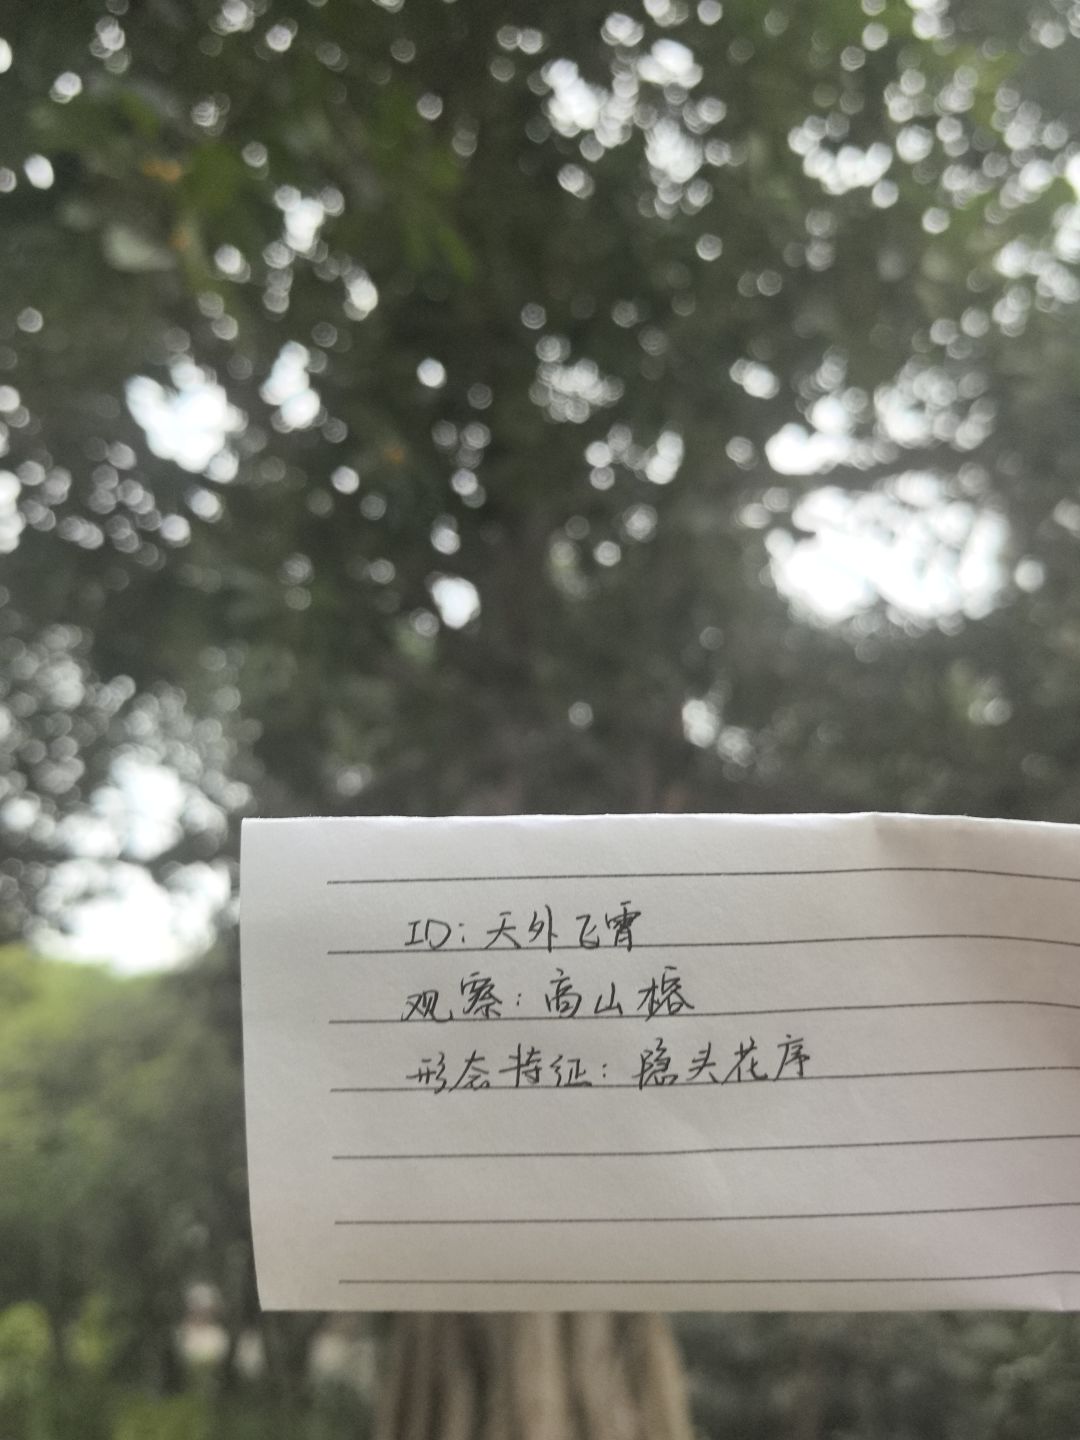 ID：天外飞霄
观察：高山榕
形态特征：隐头花序